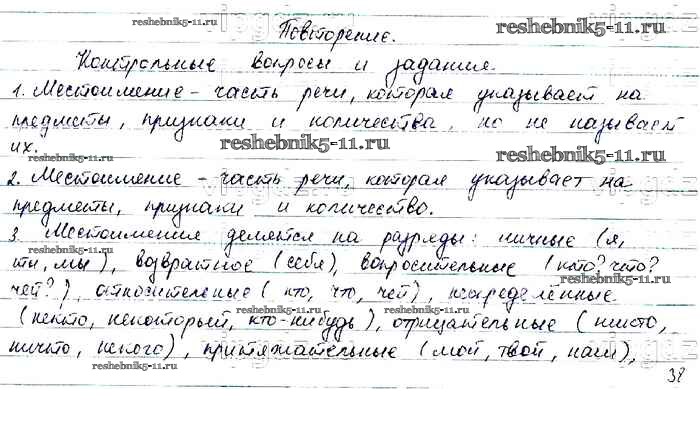 Повторение.
reshebnik5-11.ru
reshebnik5-11.ru
Контрольные вопросы и задания.
1. Местоимение – часть речи, которая указывает на
предметы, признаки и количества, но не называет
их.
reshebnik5-11.ru
reshebnik5-11.ru
2. Местоимение – часть речи, которая указывает на
предметы, признаки и количество.
reshebnik5-11.ru
reshebnik5-11.ru
3. Местоимения делятся на разряды: личные (я,
ты, мы), возвратное (себя), вопросительные (кто? что?
чей?), относительные (кто, что, чей), неопределённые
reshebnik5-11.ru
reshebnik5-11.ru
(некто, некоторый, кто-нибудь), отрицательные (никто,
ничто, некого), притяжательные (мой, твой, наш),
reshebnik5-11.ru
reshebnik5-11.ru
38